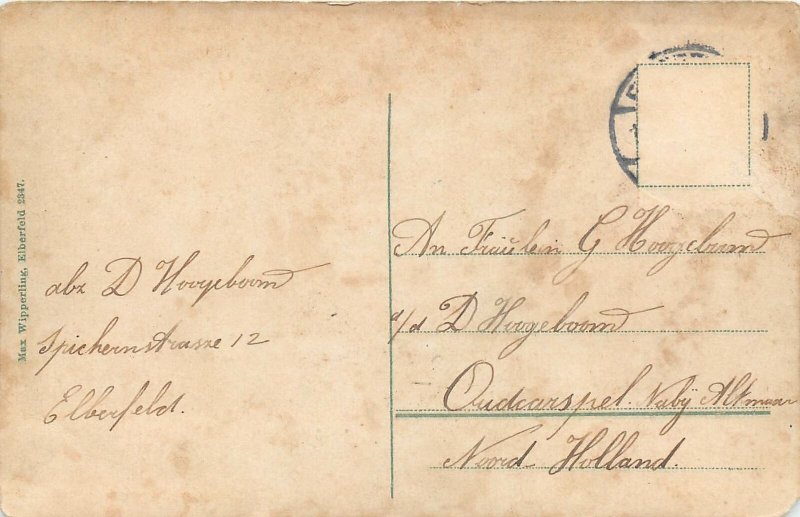 Max Wipperling, Elberfeld 2347.
abz D Hoogeboom
Spichernstrasse 12
Elberfeld.
An Fräulein G Hoogeboom
a/d D Hoogeboom
Oudcarspel. Nabÿ Alkmaar
Noord Holland.